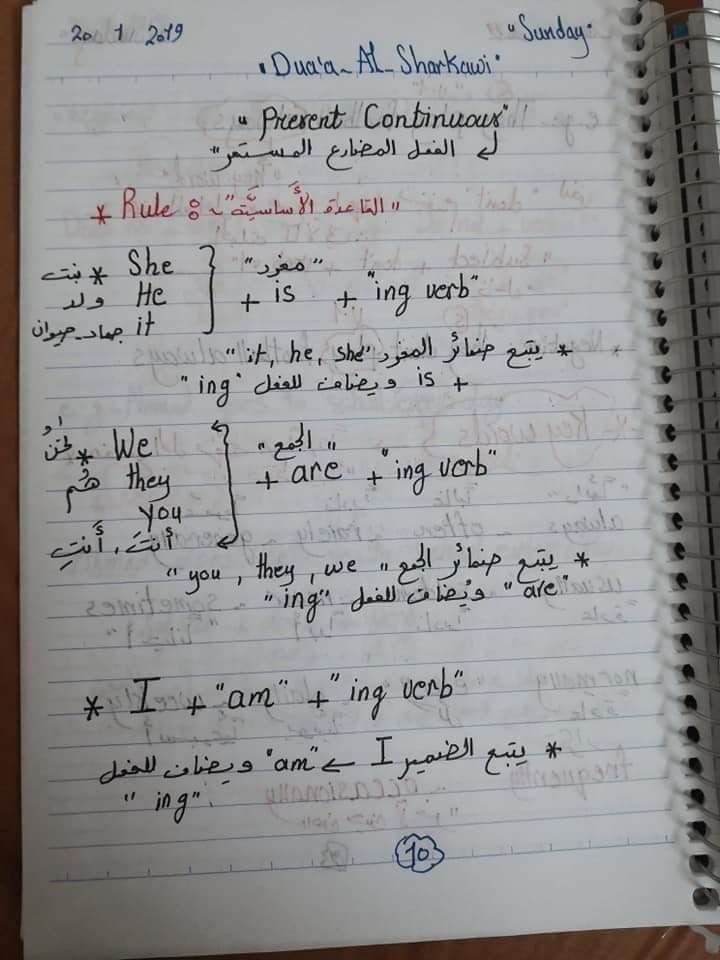 20 1 2019 "Sunday"
"Dua'a - Al - Sharkawi"
"Present Continuous"
الفعل المضارع المستمر"
* Rule : ~ "القاعدة الأساسيَّة"
بنت * She "مفرد"
ولد He + is + "ing verb"
جماد - حيوان it
* يتبع ضمائر المفرد "it, he, she"
+ is ويضاف للفعل "ing"
نحن * We "الجمع"
هُم they + are + "ing verb"
you
أنتَ، أَنتِ
* يتبع ضمائر الجمع "you, they, we"
"are" ويُضاف للفعل "ing"
* I + "am" + "ing verb"
* يتبع الضمير I "am" ويضاف للفعل
"ing"
10